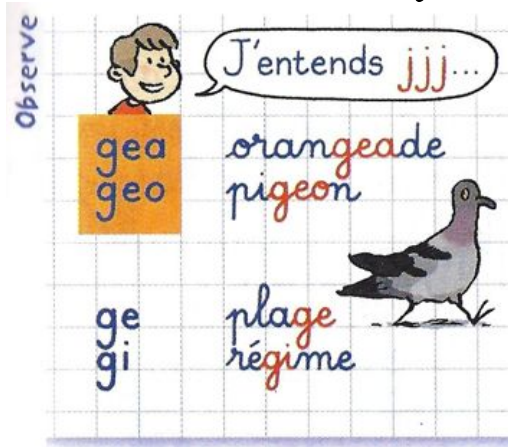 Observe
J'entends jjj...
gea orangeade
geo pigeon
ge plage
gi régime